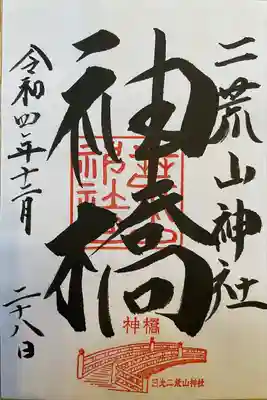 二荒山神社
神橋
令和四年十二月
二十八日
神橋
日光二荒山神社